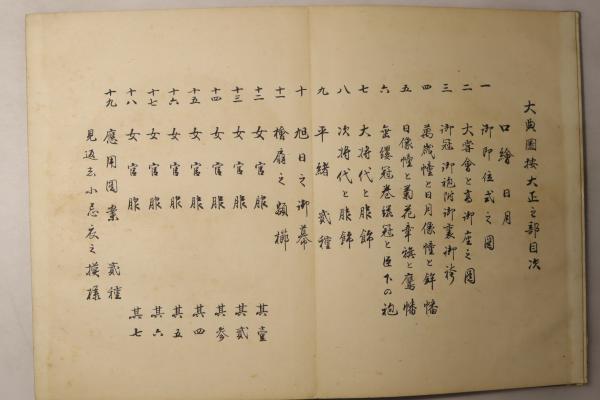 大典圖按大正之部目次
口繪 日月
一 御即位式之圖
二 大嘗會と高御座之圖
三 御冠御袍附御裏御袴
四 萬歳幡と日月像幢と鉾幡
五 日像幢と菊花章旗と鷹幡
六 無纓冠巻纓冠と臣下の袍
七 大将代と服飾
八 次将代と服飾
九 平緒 貳種
十 旭日之御幕
十一 檜扇之類櫛
十二 女官服 其壹
十三 女官服 其貳
十四 女官服 其参
十五 女官服 其四
十六 女官服 其五
十七 女官服 其六
十八 女官服 其七
十九 應用図業 貳種
見返シ小忌衣之模様